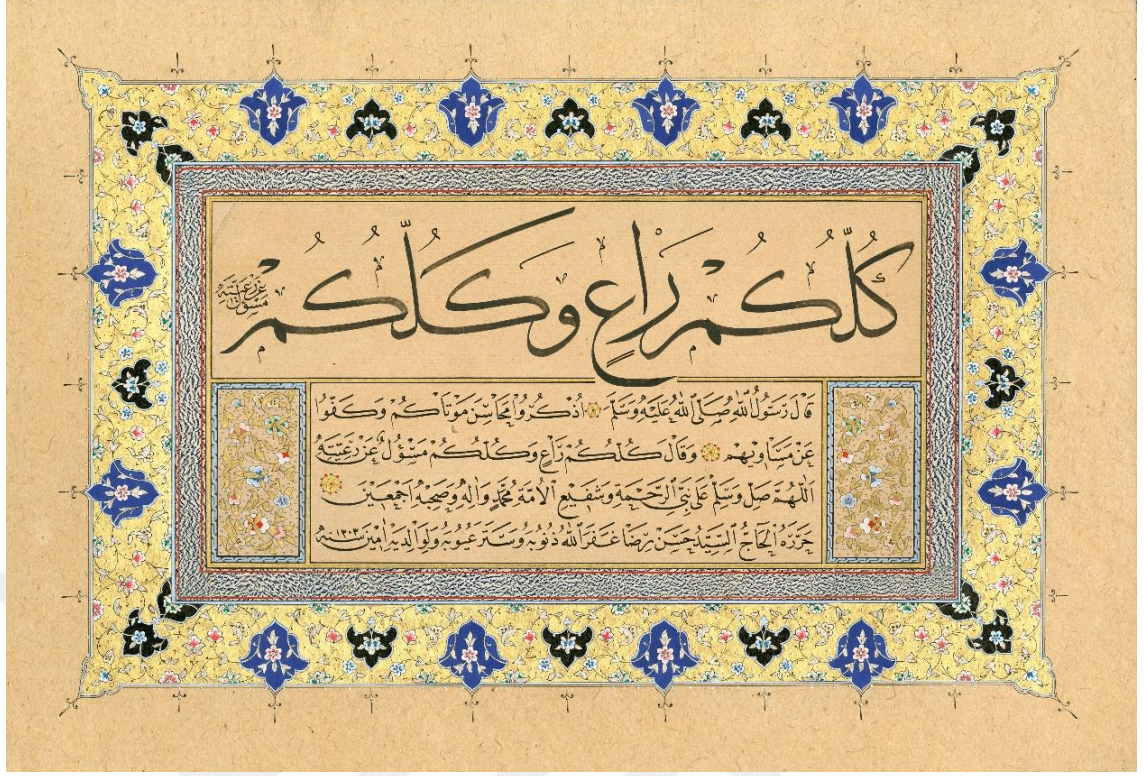 كُلُّكُمْ رَاعٍ وَكُلُّكُمْ
مَسْؤُلٌ عَنْ رَعِيَّتِهِ
قَالَ رَسُولُ اللهِ صَلَّى اللهُ عَلَيْهِ وَسَلَّمَ اُذْكُرُوا مَحَاسِنَ مَوْتَاكُمْ وَكَفُّوا
عَنْ مَسَاوِيهِمْ وَقَالَ كُلُّكُمْ رَاعٍ وَكُلُّكُمْ مَسْؤُلٌ عَنْ رَعِيَّتِهِ
اَللّٰهُمَّ صَلِّ وَسَلِّمْ عَلَى نَبِيِّ الرَّحْمَةِ وَشَفِيعِ الْاُمَّةِ مُحَمَّدٍ وَاٰلِهِ وَصَحْبِهِ اَجْمَعِينَ
حَرَّرَهُ الْحَاجُّ السَّيِّدُ حَسَنْ رِضَا غَفَرَ اللهُ ذُنُوبَهُ وَسَتَرَ عُيُوبَهُ وَلِوَالِدَيْهِ اٰمِينَ سنه ١٣٠٣